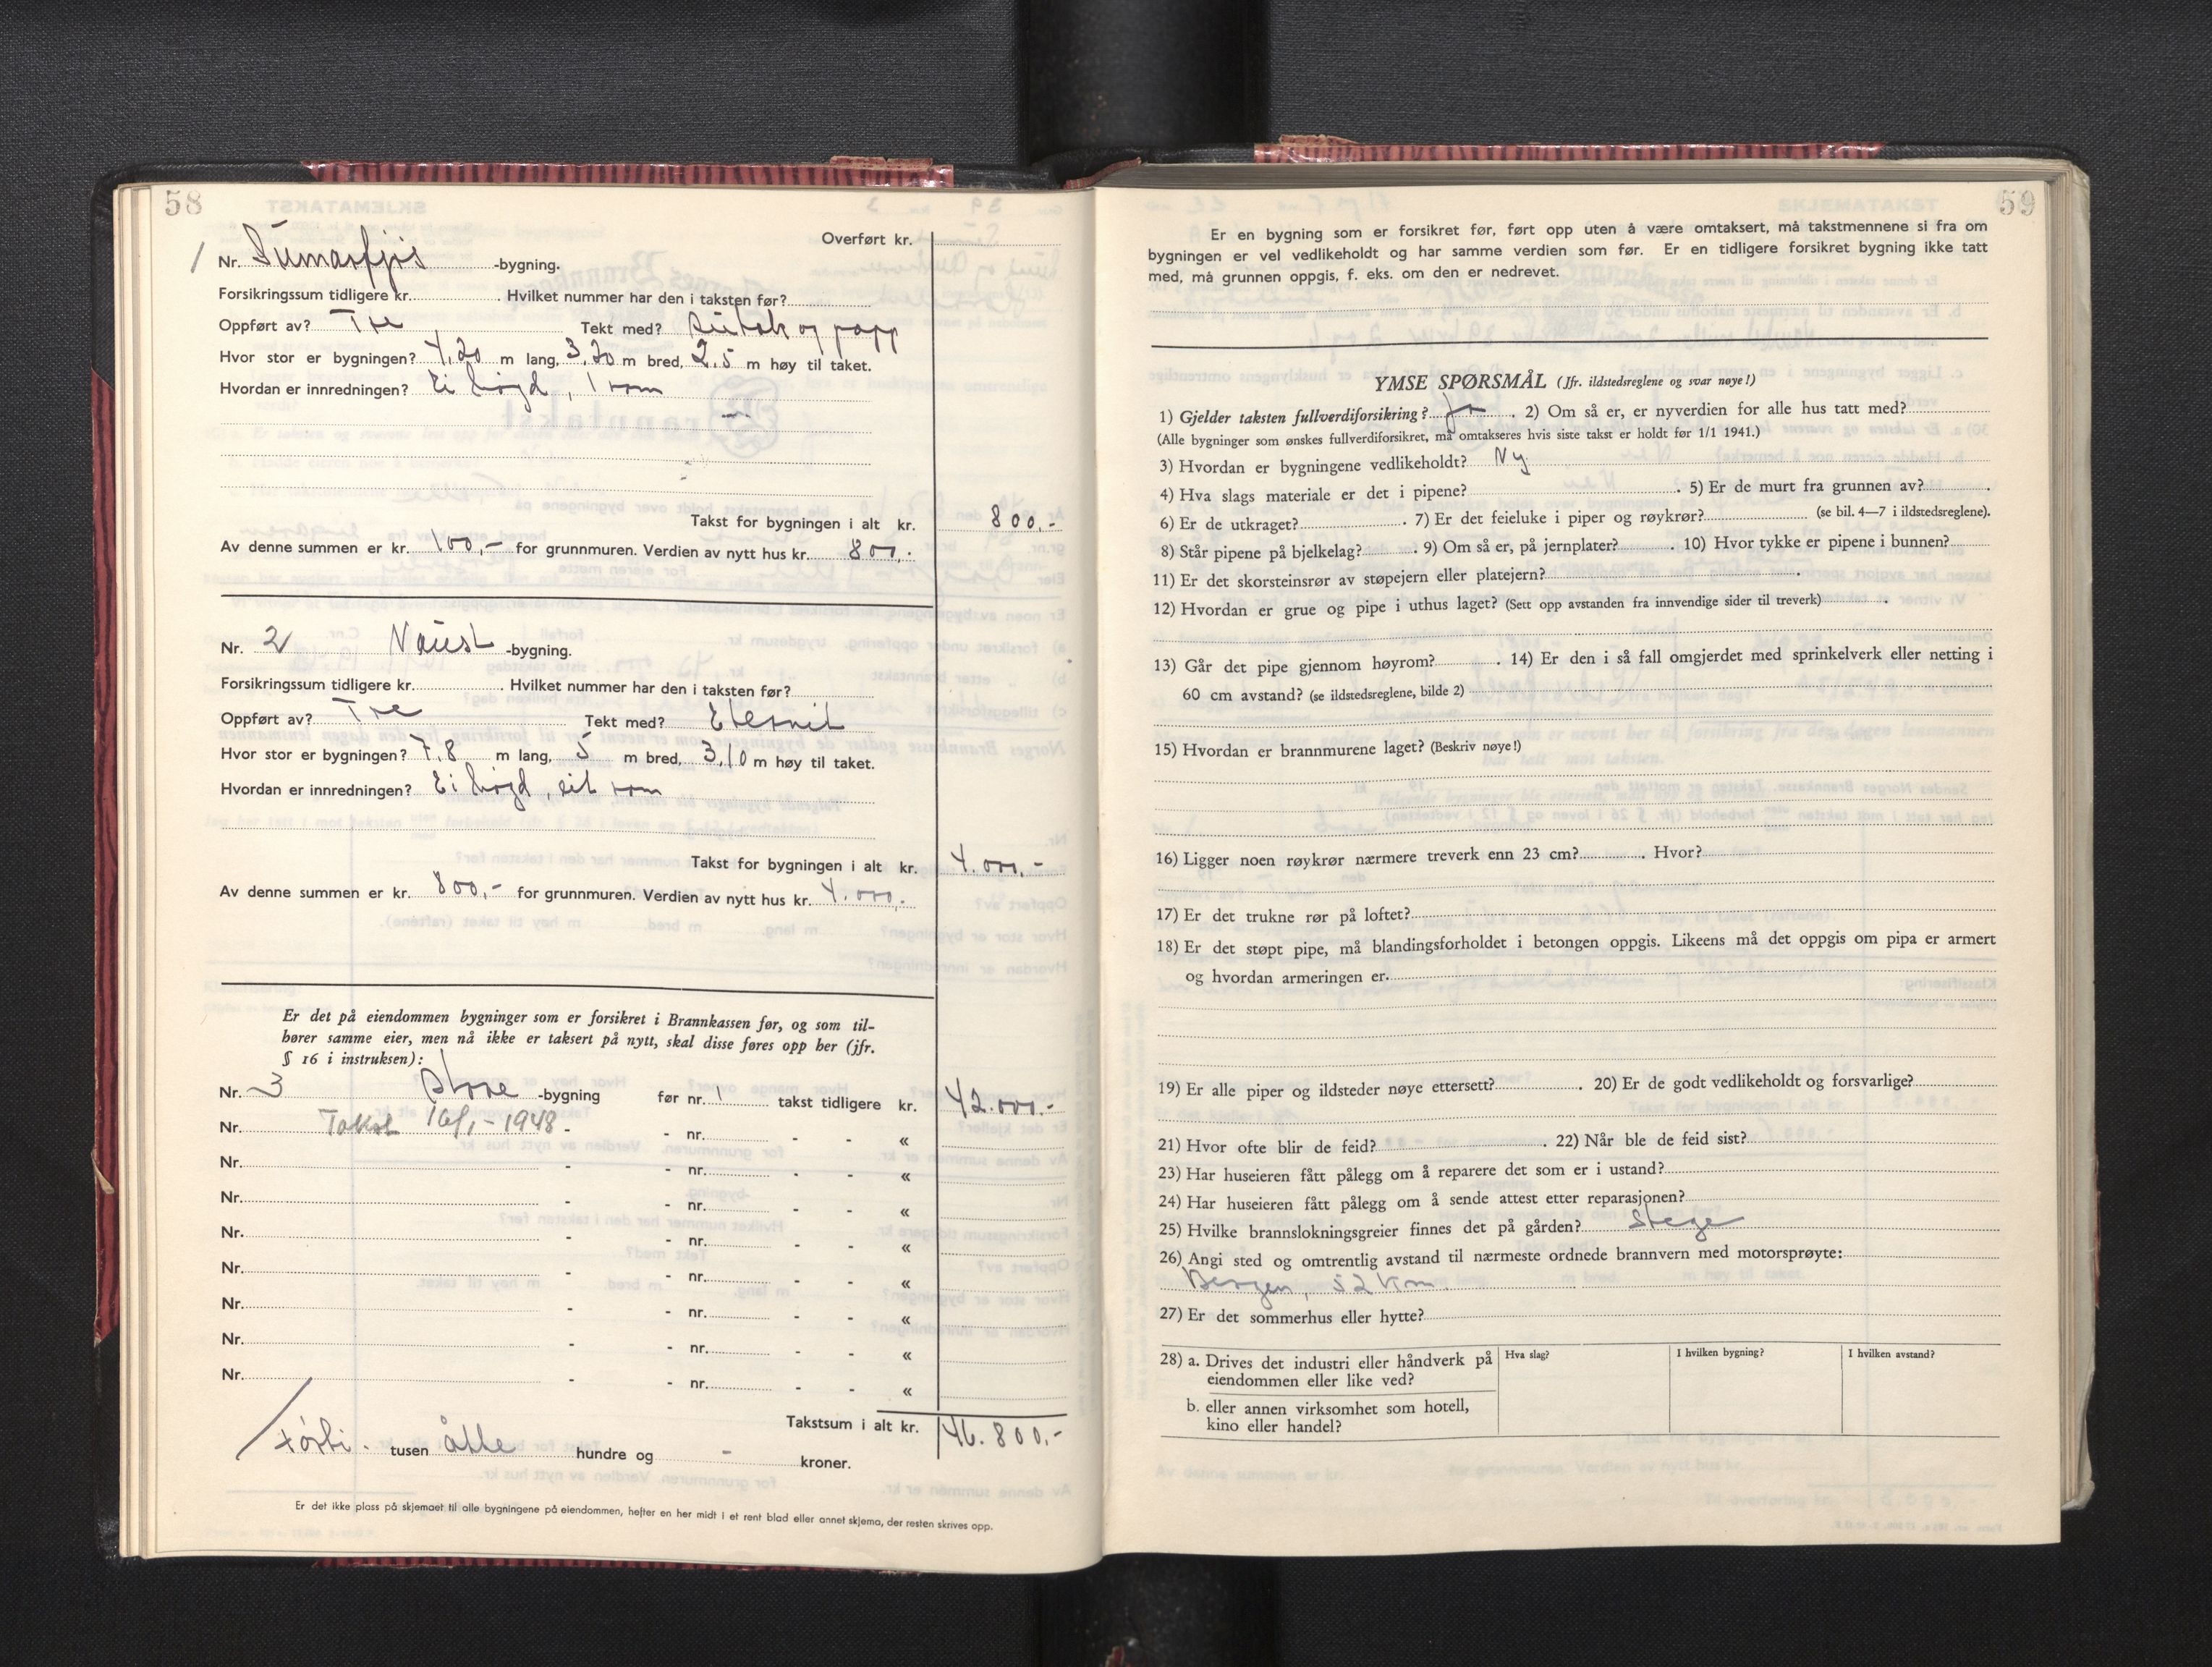 58
Overført kr.
1 Nr. Sumarfjøs -bygning.
Forsikringssum tidligere kr. Hvilket nummer har den i taksten før?
Oppført av? Tre Tekt med? sutak og papp
Hvor stor er bygningen? 4,20 m lang, 3,20 m bred, 2,5 m høy til taket.
Hvordan er innredningen? Ei høgd, 1 rom
Takst for bygningen i alt kr. 800,-
Av denne summen er kr. 100,- for grunnmuren. Verdien av nytt hus kr. 800,-
Nr. 2 Naust -bygning.
Forsikringssum tidligere kr. Hvilket nummer har den i taksten før?
Oppført av? Tre Tekt med? Eternit
Hvor stor er bygningen? 7,8 m lang, 5 m bred, 3,10 m høy til taket.
Hvordan er innredningen? Ei høgd, eit rom
Takst for bygningen i alt kr. 4.000,-
Av denne summen er kr. 800,- for grunnmuren. Verdien av nytt hus kr. 4.000,-
Er det på eiendommen bygninger som er forsikret i Brannkassen før, og som til-
hører samme eier, men nå ikke er taksert på nytt, skal disse føres opp her (jfr.
§ 16 i instruksen):
Nr. 3 stove -bygning før nr. 1 takst tidligere kr. 42.000,-
Nr. Takst 16/1-1948 - - nr. - - «
Nr. - - nr. - - «
Nr. - - nr. - - «
Nr. - - nr. - - «
Nr. - - nr. - - «
Nr. - - nr. - - «
Nr. - - nr. - - «
Nr. - - nr. - - «
Takstsum i alt kr. 46.800,-
tusen åtte hundre og - kroner.
Er det ikke plass på skjemaet til alle bygningene på eiendommen, hefter en her midt i et rent blad eller annet skjema, der resten skrives opp.
59
Er en bygning som er forsikret før, ført opp uten å være omtaksert, må takstmennene si fra om
bygningen er vel vedlikeholdt og har samme verdien som før. Er en tidligere forsikret bygning ikke tatt
med, må grunnen oppgis, f. eks. om den er nedrevet.
YMSE SPØRSMÅL (Jfr. ildstedsreglene og svar nøye!)
1) Gjelder taksten fullverdiforsikring? ja. 2) Om så er, er nyverdien for alle hus tatt med?
(Alle bygninger som ønskes fullverdiforsikret, må omtakseres hvis siste takst er holdt før 1/1 1941.)
3) Hvordan er bygningene vedlikeholdt? Ny
4) Hva slags materiale er det i pipene? . 5) Er de murt fra grunnen av? .
6) Er de utkraget? . 7) Er det feieluke i piper og røykrør? (se bil. 4—7 i ildstedsreglene).
8) Står pipene på bjelkelag? . 9) Om så er, på jernplater? . 10) Hvor tykke er pipene i bunnen?
11) Er det skorsteinsrør av støpejern eller platejern? .
12) Hvordan er grue og pipe i uthus laget? (Sett opp avstanden fra innvendige sider til treverk) .
13) Går det pipe gjennom høyrom? . 14) Er den i så fall omgjerdet med sprinkelverk eller netting i
60 cm avstand? (se ildstedsreglene, bilde 2)
15) Hvordan er brannmurene laget? (Beskriv nøye!)
16) Ligger noen røykrør nærmere treverk enn 23 cm? . Hvor?
17) Er det trukne rør på loftet?
18) Er det støpt pipe, må blandingsforholdet i betongen oppgis. Likeens må det oppgis om pipa er armert
og hvordan armeringen er.
19) Er alle piper og ildsteder nøye ettersett? . 20) Er de godt vedlikeholdt og forsvarlige?
21) Hvor ofte blir de feid? . 22) Når ble de feid sist?
23) Har huseieren fått pålegg om å reparere det som er i ustand?
24) Har huseieren fått pålegg om å sende attest etter reparasjonen?
25) Hvilke brannslokningsgreier finnes det på gården? Stege
26) Angi sted og omtrentlig avstand til nærmeste ordnede brannvern med motorsprøyte:
Bergen, 52 km.
27) Er det sommerhus eller hytte?
28) a. Drives det industri eller håndverk på
eiendommen eller like ved?
Hva slag? I hvilken bygning? I hvilken avstand?
b. eller annen virksomhet som hotell,
kino eller handel?